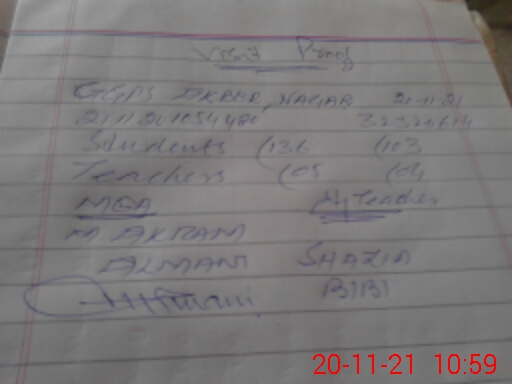 Visit Proof
GGPS AKBER NAGAR 20-11-21
32320614
Students (136 (103
Teachers (05 (04
MEA H/Teacher
M. AKRAM
ALMANI SHAZIA
BIBI
20-11-21 10:59